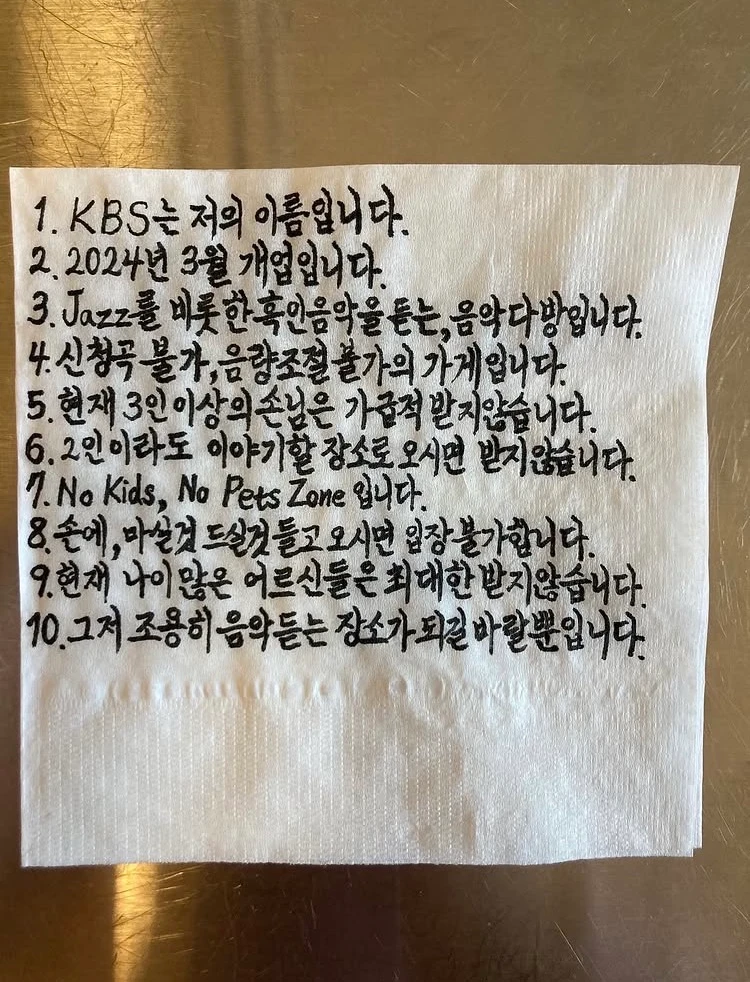 1. KBS는 저의 이름입니다.
2. 2024년 3월 개업입니다.
3. Jazz를 비롯한 흑인음악을 듣는, 음악다방입니다.
4. 신청곡 불가, 음량조절 불가의 가게입니다.
5. 현재 3인이상의 손님은 가급적 받지않습니다.
6. 2인이라도 이야기할 장소로 오시면 받지않습니다.
7. No Kids, No Pets Zone 입니다.
8. 손에, 마실것 드실것 들고 오시면 입장 불가합니다.
9. 현재 나이많은 어르신들은 최대한 받지않습니다.
10. 그저 조용히 음악듣는 장소가 되길 바랄뿐입니다.